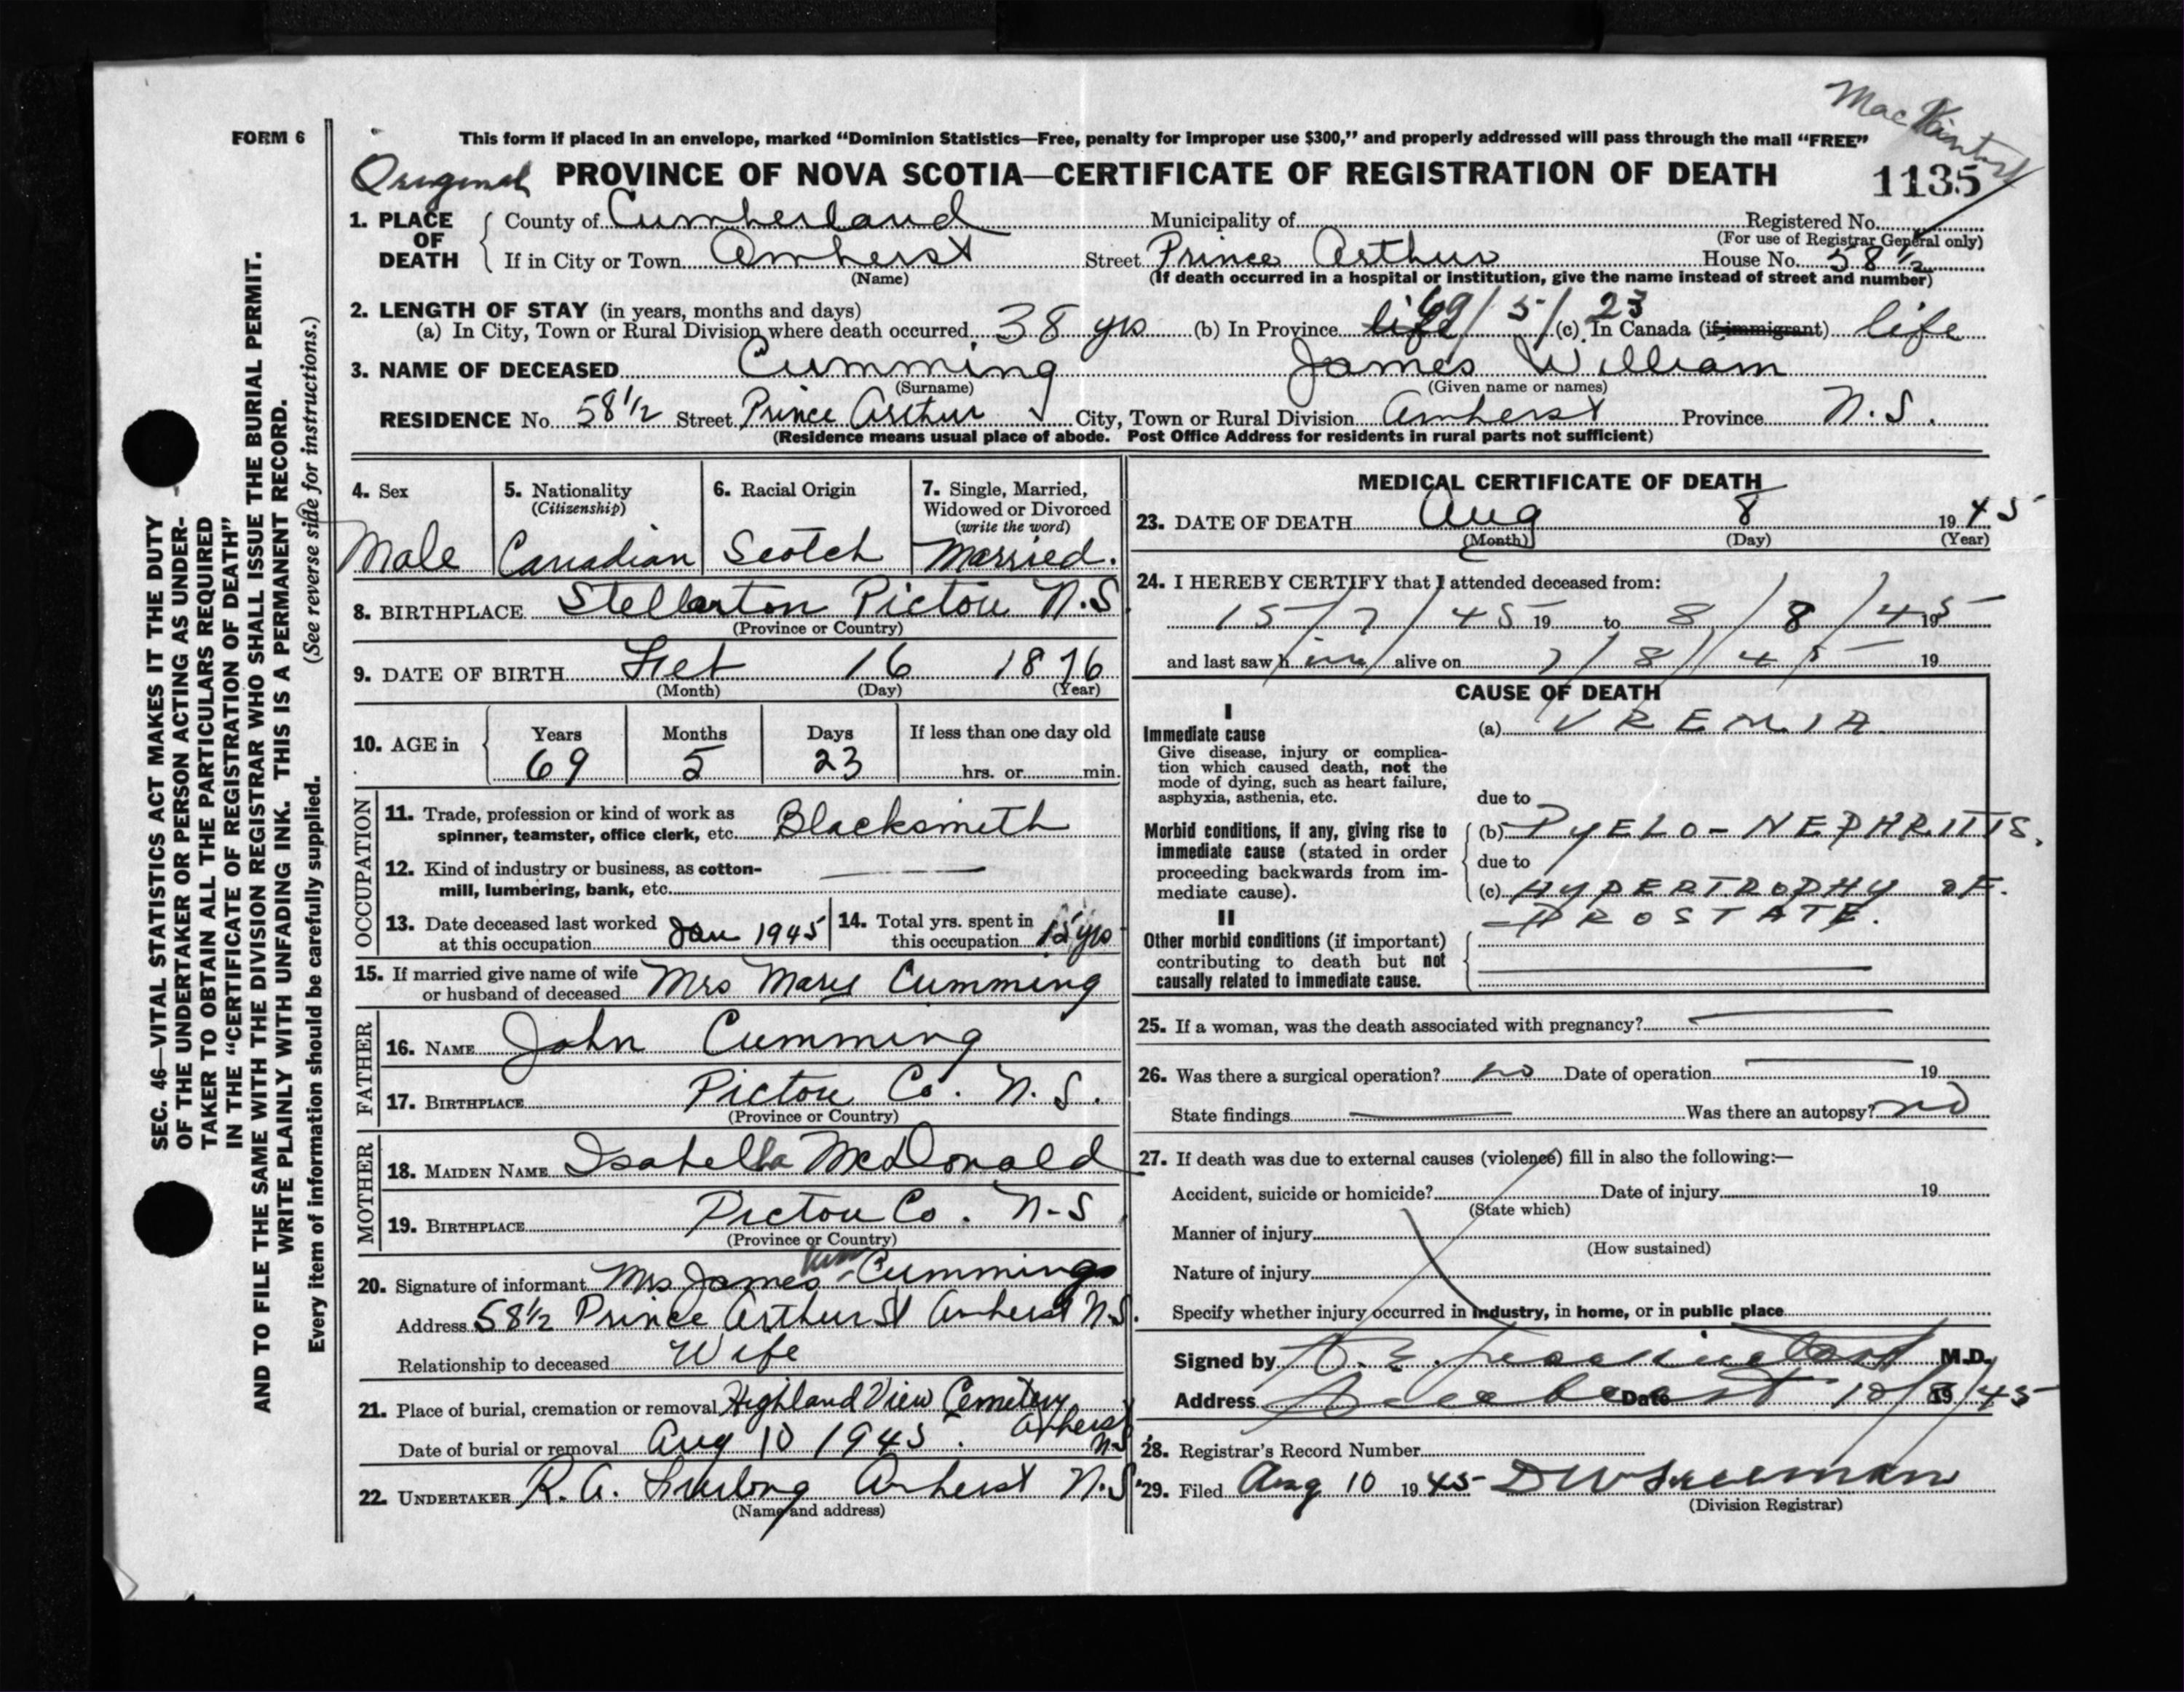 MacKintosh
FORM 6
This form if placed in an envelope, marked “Dominion Statistics—Free, penalty for improper use $300,” and properly addressed will pass through the mail “FREE”
Original PROVINCE OF NOVA SCOTIA—CERTIFICATE OF REGISTRATION OF DEATH 1135
1. PLACE OF DEATH County of Cumberland Municipality of Registered No.
(For use of Registrar General only)
If in City or Town Amherst Street Prince Arthur House No. 58 1/2
(Name) (If death occurred in a hospital or institution, give the name instead of street and number)
2. LENGTH OF STAY (in years, months and days) 69/5/23
(a) In City, Town or Rural Division where death occurred 38 yrs (b) In Province life (c) In Canada (if immigrant) life
3. NAME OF DECEASED Cumming James William
(Surname) (Given name or names)
RESIDENCE No. 58 1/2 Street Prince Arthur City, Town or Rural Division Amherst Province N.S.
(Residence means usual place of abode. Post Office Address for residents in rural parts not sufficient)
4. Sex
Male
5. Nationality
(Citizenship)
Canadian
6. Racial Origin
Scotch
7. Single, Married,
Widowed or Divorced
(write the word)
Married.
8. BIRTHPLACE Stellarton Pictou N.S.
(Province or Country)
9. DATE OF BIRTH Feb 16 1876
(Month) (Day) (Year)
10. AGE in Years Months Days If less than one day old
69 5 23 hrs. or min.
OCCUPATION
11. Trade, profession or kind of work as
spinner, teamster, office clerk, etc. Blacksmith
12. Kind of industry or business, as cotton-
mill, lumbering, bank, etc. —
13. Date deceased last worked
at this occupation Jan 1945
14. Total yrs. spent in
this occupation 15 yrs
15. If married give name of wife
or husband of deceased Mrs Mary Cumming
FATHER
16. NAME John Cumming
17. BIRTHPLACE Pictou Co. N. S.
(Province or Country)
MOTHER
18. MAIDEN NAME Isabella McDonald
19. BIRTHPLACE Pictou Co. N-S.
(Province or Country)
20. Signature of informant Mrs James Wm Cumming
Address 58 1/2 Prince Arthur St Amherst N.S.
Relationship to deceased Wife
21. Place of burial, cremation or removal Highland View Cemetery
Amherst
Date of burial or removal Aug 10 1945. N-S
22. UNDERTAKER R. A. Furlong Amherst N.S
(Name and address)
MEDICAL CERTIFICATE OF DEATH
23. DATE OF DEATH Aug 8 1945
(Month) (Day) (Year)
24. I HEREBY CERTIFY that I attended deceased from:
15/7/45 19 to 8/8/45 19
and last saw him alive on 7/8/45 19
CAUSE OF DEATH
I
Immediate cause
Give disease, injury or complica-
tion which caused death, not the
mode of dying, such as heart failure,
asphyxia, asthenia, etc.
(a) UREMIA.
due to
Morbid conditions, if any, giving rise to
immediate cause (stated in order
proceeding backwards from im-
mediate cause).
(b) PYELO-NEPHRITIS.
due to
(c) HYPERTROPHY OF.
PROSTATE.
II
Other morbid conditions (if important)
contributing to death but not
causally related to immediate cause.
25. If a woman, was the death associated with pregnancy? —
26. Was there a surgical operation? no Date of operation — 19
State findings — Was there an autopsy? no
27. If death was due to external causes (violence) fill in also the following:—
Accident, suicide or homicide? Date of injury 19
(State which)
Manner of injury
(How sustained)
Nature of injury
Specify whether injury occurred in industry, in home, or in public place
Signed by M.D.
Address Date 10/8/45 19
28. Registrar's Record Number
29. Filed Aug 10 1945 D W Freeman
(Division Registrar)
SEC. 46—VITAL STATISTICS ACT MAKES IT THE DUTY
OF THE UNDERTAKER OR PERSON ACTING AS UNDER-
TAKER TO OBTAIN ALL THE PARTICULARS REQUIRED
IN THE “CERTIFICATE OF REGISTRATION OF DEATH”
AND TO FILE THE SAME WITH THE DIVISION REGISTRAR WHO SHALL ISSUE THE BURIAL PERMIT.
WRITE PLAINLY WITH UNFADING INK. THIS IS A PERMANENT RECORD.
Every item of information should be carefully supplied. (See reverse side for instructions.)